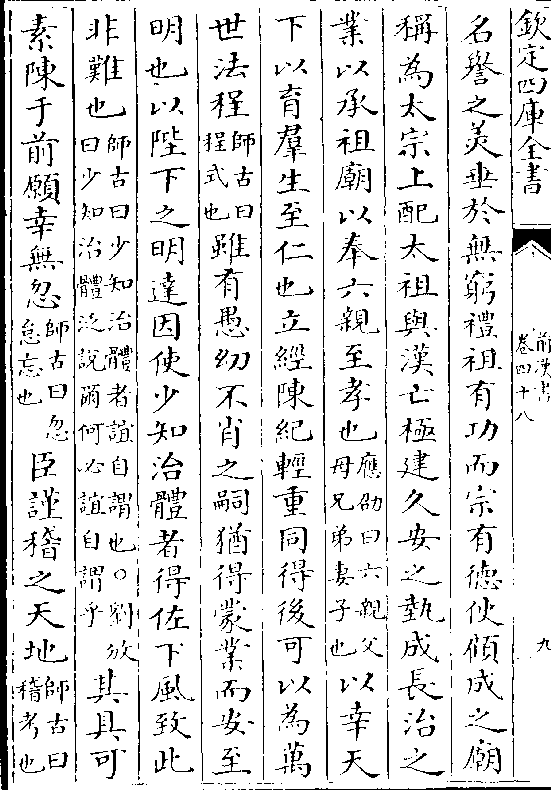 欽定四庫全書
前漢書
卷四十八
九
名譽之美垂於無窮禮祖有功而宗有德使顧成之廟
稱為太宗上配太祖與漢亡極建久安之埶成長治之
業以承祖廟以奉六親至孝也應劭曰六親父母兄弟妻子也以幸天
下以育羣生至仁也立經陳紀輕重同得後可以為萬
世法程師古曰程式也雖有愚幼不肖之嗣猶得蒙業而安至
明也以陛下之明達因使少知治體者得佐下風致此
非難也師古曰少知治體者誼自謂也○劉攽曰少知治體泛說爾何必誼自謂乎其具可
素陳于前願幸無忽師古曰忽怠忘也臣謹稽之天地師古曰稽考也